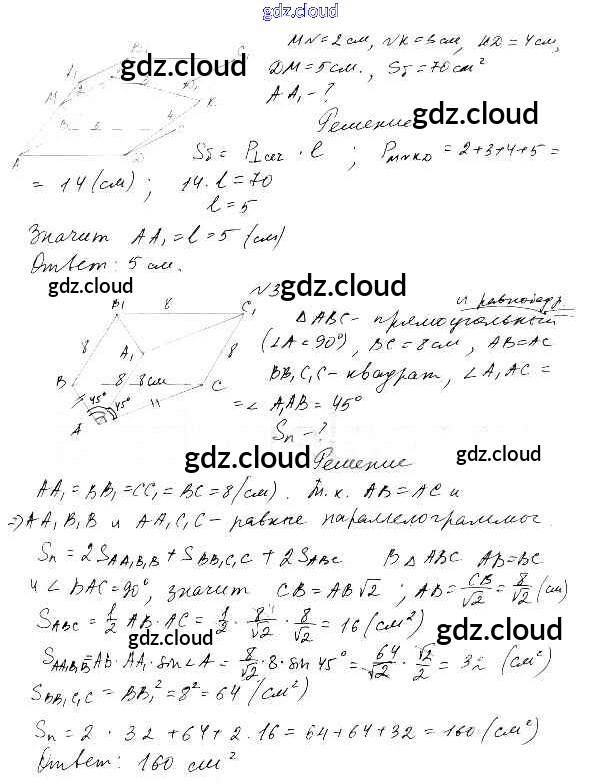 gdz.cloud
MN=2см, NK=3см, KD=4см,
gdz.cloud
DM=5см., Sб=70см²
AA₁-?
gdz.cloud
Решение
Sб = P⊥сеч · l ; PMNKD = 2+3+4+5 =
= 14 (см) ; 14·l=70
l=5
Значит AA₁=l=5 (см)
Ответ: 5 см.
gdz.cloud
N3
gdz.cloud
и равнобедр
ΔABC - прямоугольный
(∠A=90°), BC=8см, AB=AC
BB₁C₁C - квадрат, ∠A₁AC =
= ∠A₁AB = 45°
Sп - ?
gdz.cloud
Решение
gdz.cloud
AA₁=BB₁=CC₁=BC=8(см). Т.к. AB=AC и
⇒AA₁B₁B и AA₁C₁C - равные параллелограммы.
Sп = 2SAA₁B₁B + SBB₁C₁C + 2SABC В ΔABC AB=BC
и ∠BAC=90°, значит CB=AB√2 ; AB=CB/√2=8/√2 (см)
SABC = 1/2 AB·AC = 1/2 · 8/√2 · 8/√2 = 16 (см²)
gdz.cloud
gdz.cloud
SAA₁B₁B=AB·AA₁·sin∠A = 8/√2 ·8·sin 45° = 64/√2 · √2/2 = 32 (см²)
SBB₁C₁C = BB₁² = 8² = 64 (см²)
Sп = 2 · 32 + 64 + 2·16 = 64+64+32 = 160 (см²)
Ответ: 160 см²
gdz.cloud
gdz.cloud